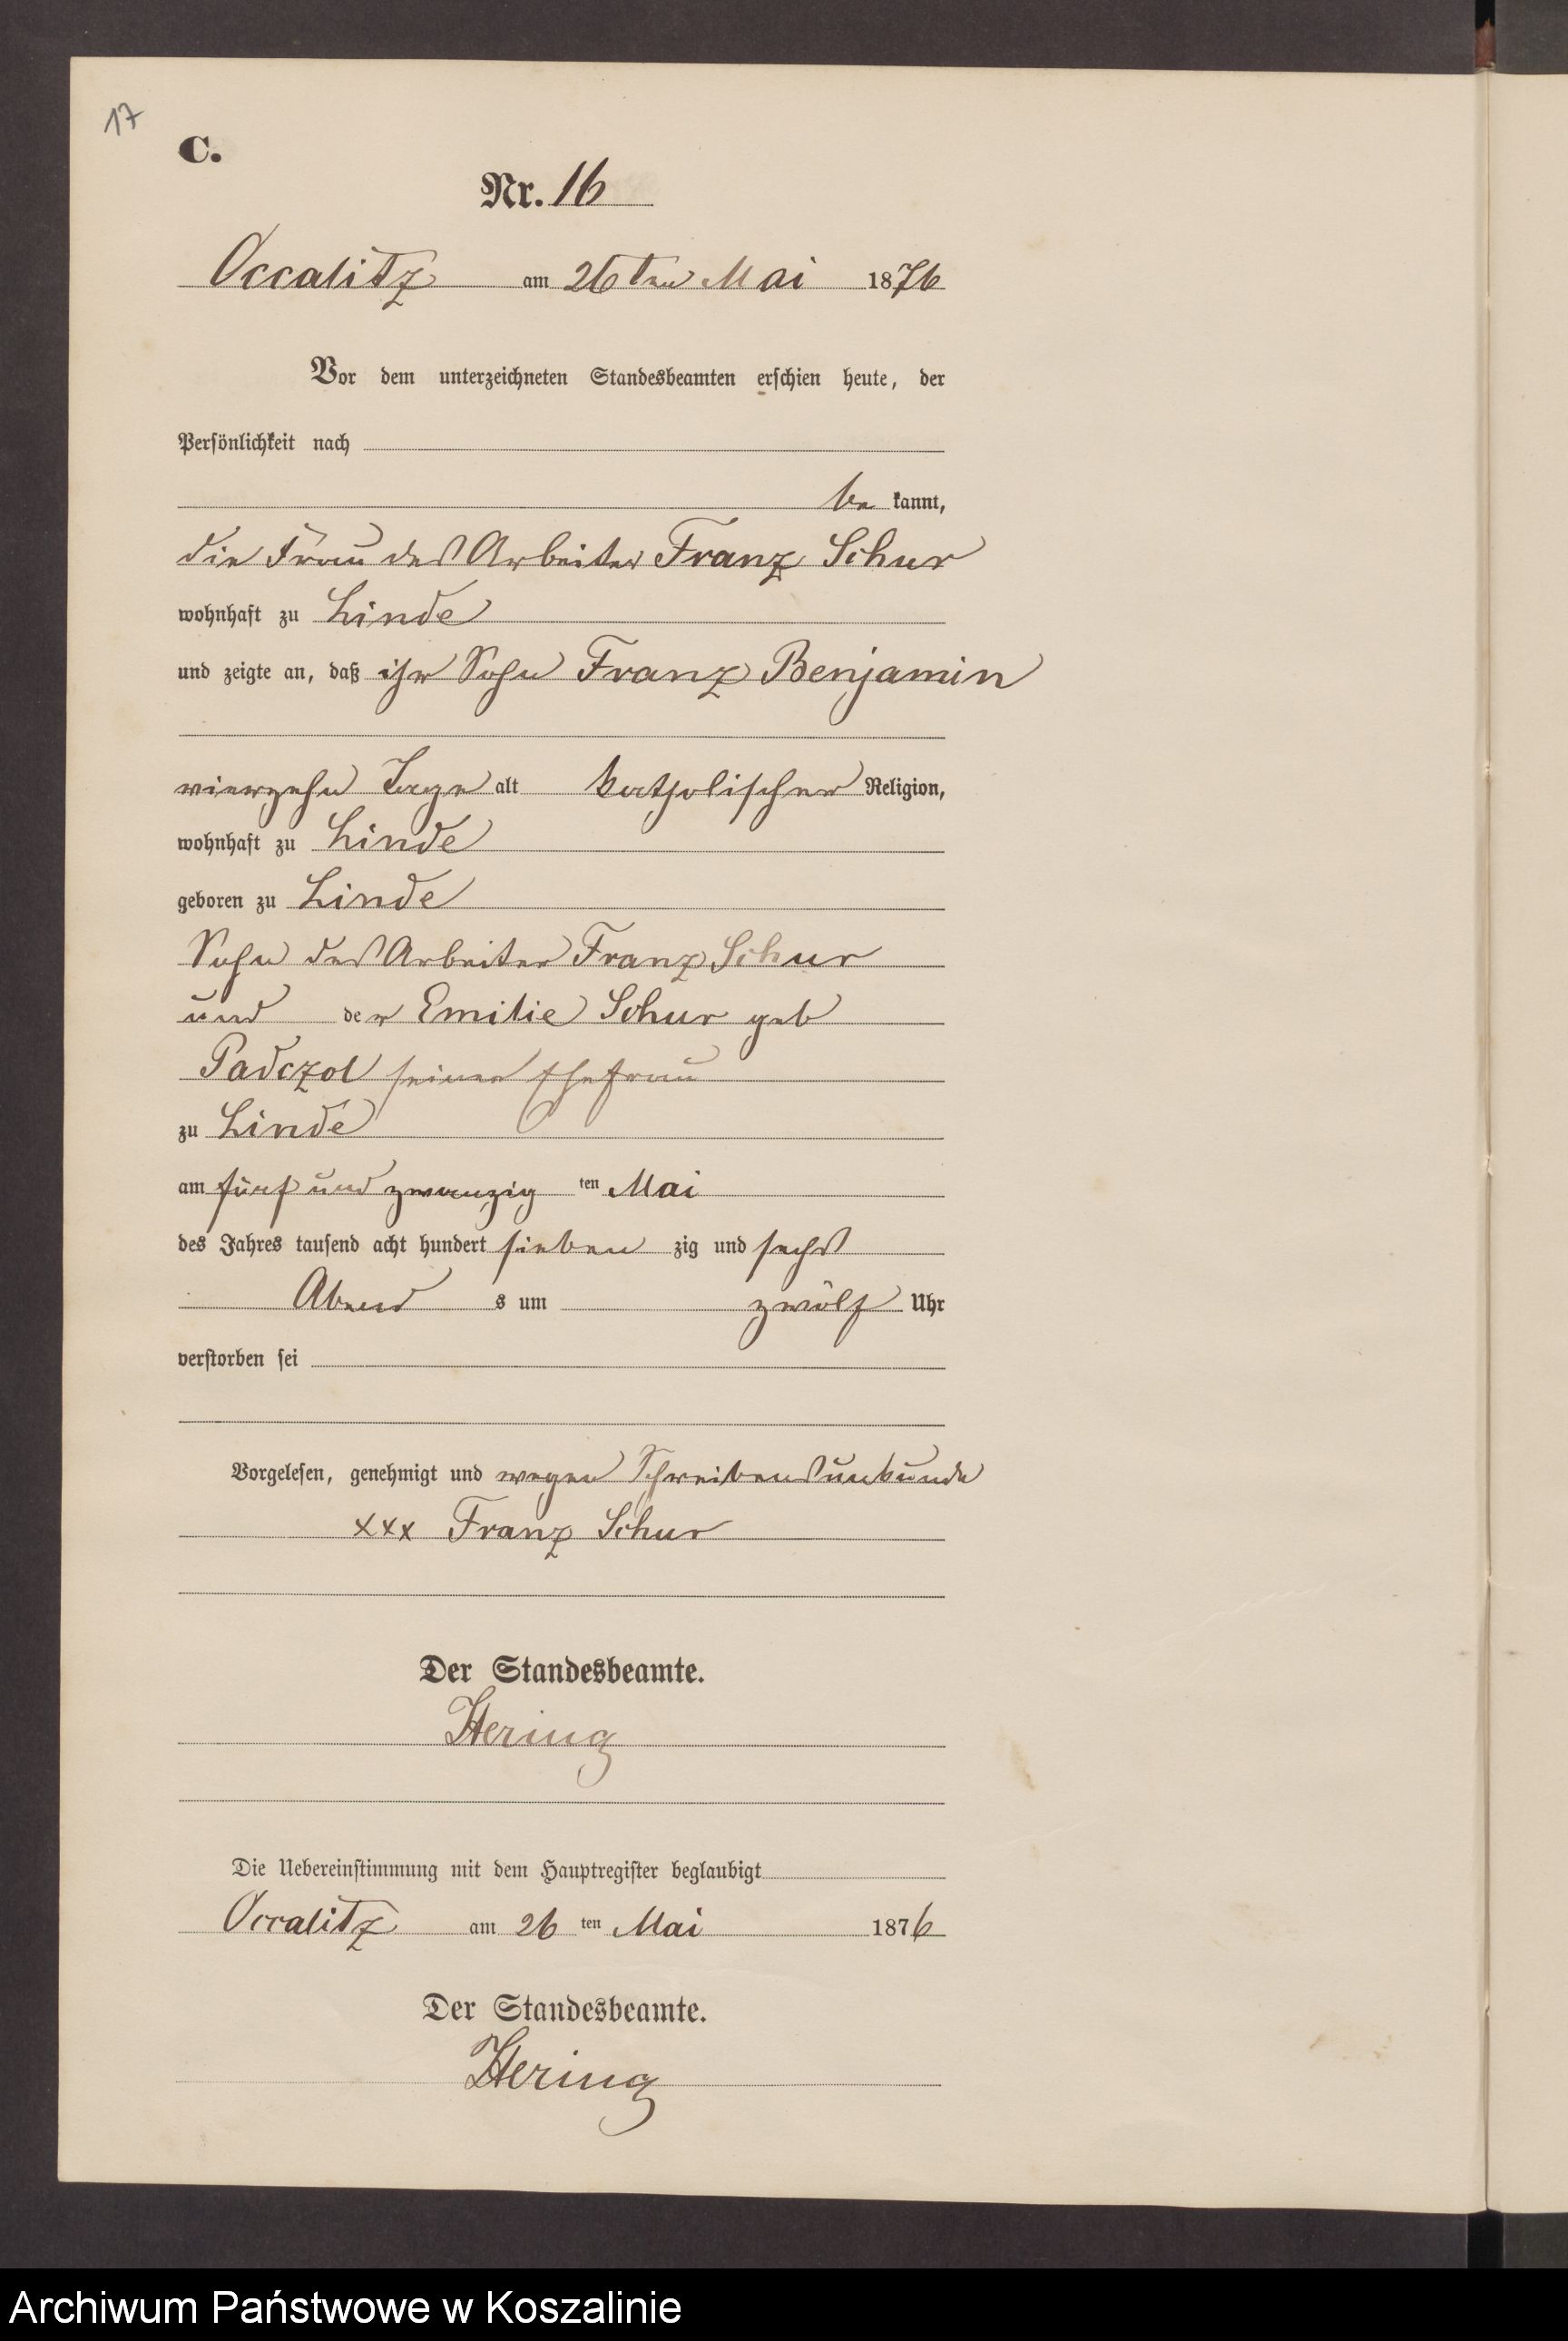 17
C.
Nr. 16
Occalitz am 26ten Mai 1876
Vor dem unterzeichneten Standesbeamten erschien heute, der
Persönlichkeit nach
be kannt,
die Frau des Arbeiter Franz Schur
wohnhaft zu Linde
und zeigte an, daß ihr Sohn Franz Benjamin
vierzehn Tage alt katholischer Religion,
wohnhaft zu Linde
geboren zu Linde
Sohn des Arbeiter Franz Schur
und der Emilie Schur geb
Padczol seiner Ehefrau
zu Linde
am fünf und zwanzig ten Mai
des Jahres tausend acht hundert sieben zig und sechs
Abend s um zwölf Uhr
verstorben sei
Vorgelesen, genehmigt und wegen Schreibensunkunde
xxx Franz Schur
Der Standesbeamte.
Hering
Die Uebereinstimmung mit dem Hauptregister beglaubigt
Occalitz am 26 ten Mai 1876
Der Standesbeamte.
Hering
Archiwum Państwowe w Koszalinie